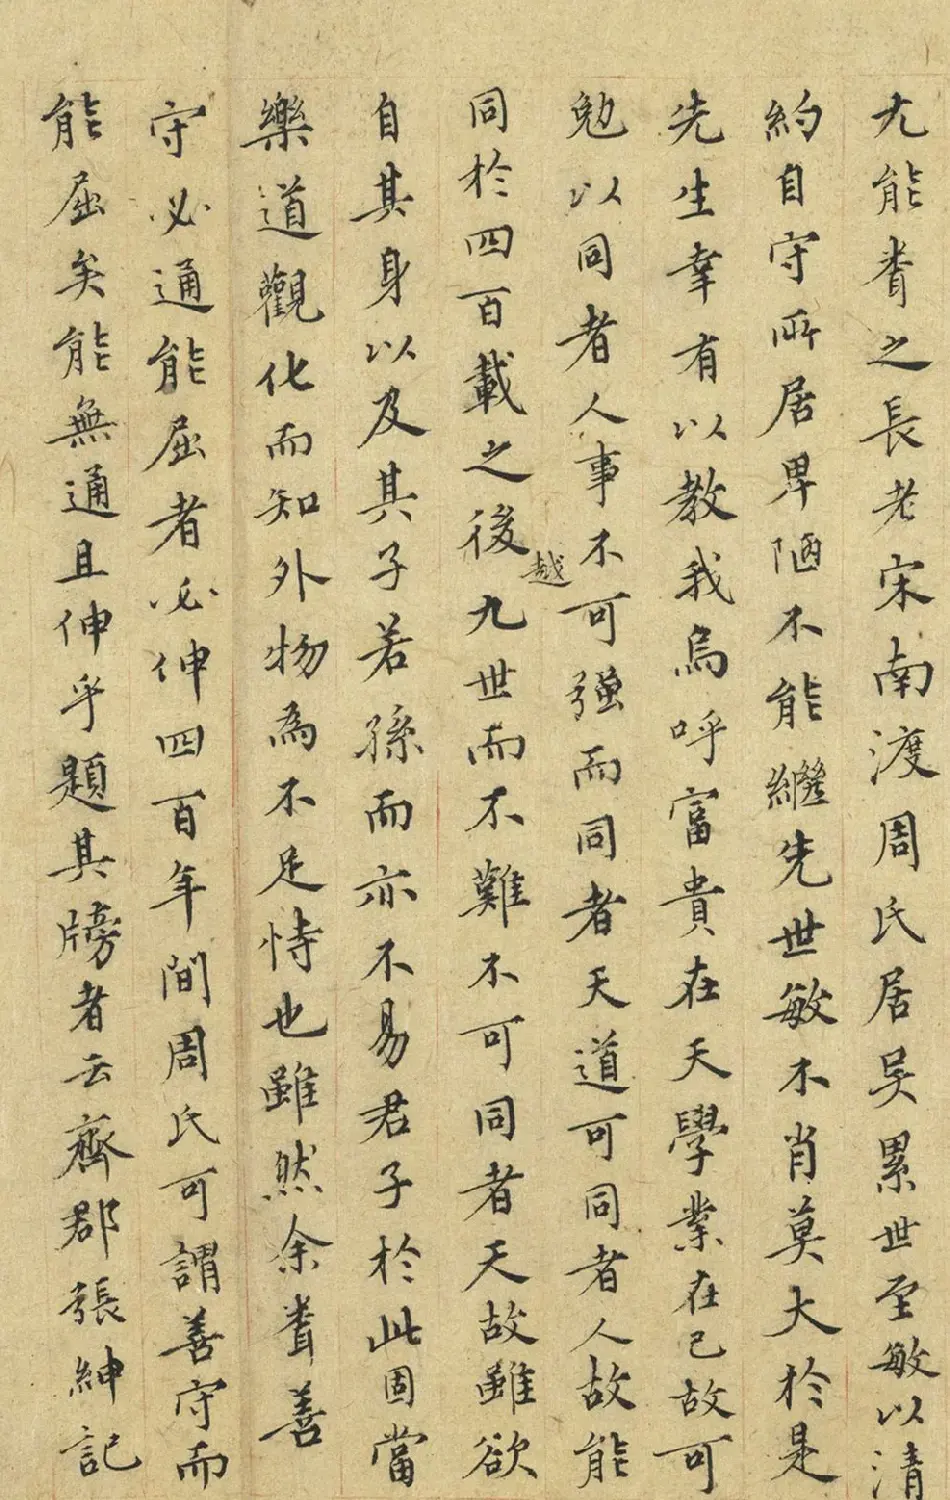 尤能聞之長老宋南渡周氏居吳累世至敏以清
約自守所居卑陋不能繼先世敏不肖莫大於是
先生幸有以教我烏呼富貴在天學業在己故可
勉以同者人事不可强而同者天道可同者人故能
同於四百載之後越九世而不難不可同者天故雖欲
自其身以及其子若孫而亦不易君子於此固當
樂道觀化而知外物為不足恃也雖然余聞善
守必通能屈者必伸四百年間周氏可謂善守而
能屈矣能無通且伸乎題其牓者云齊郡張紳記